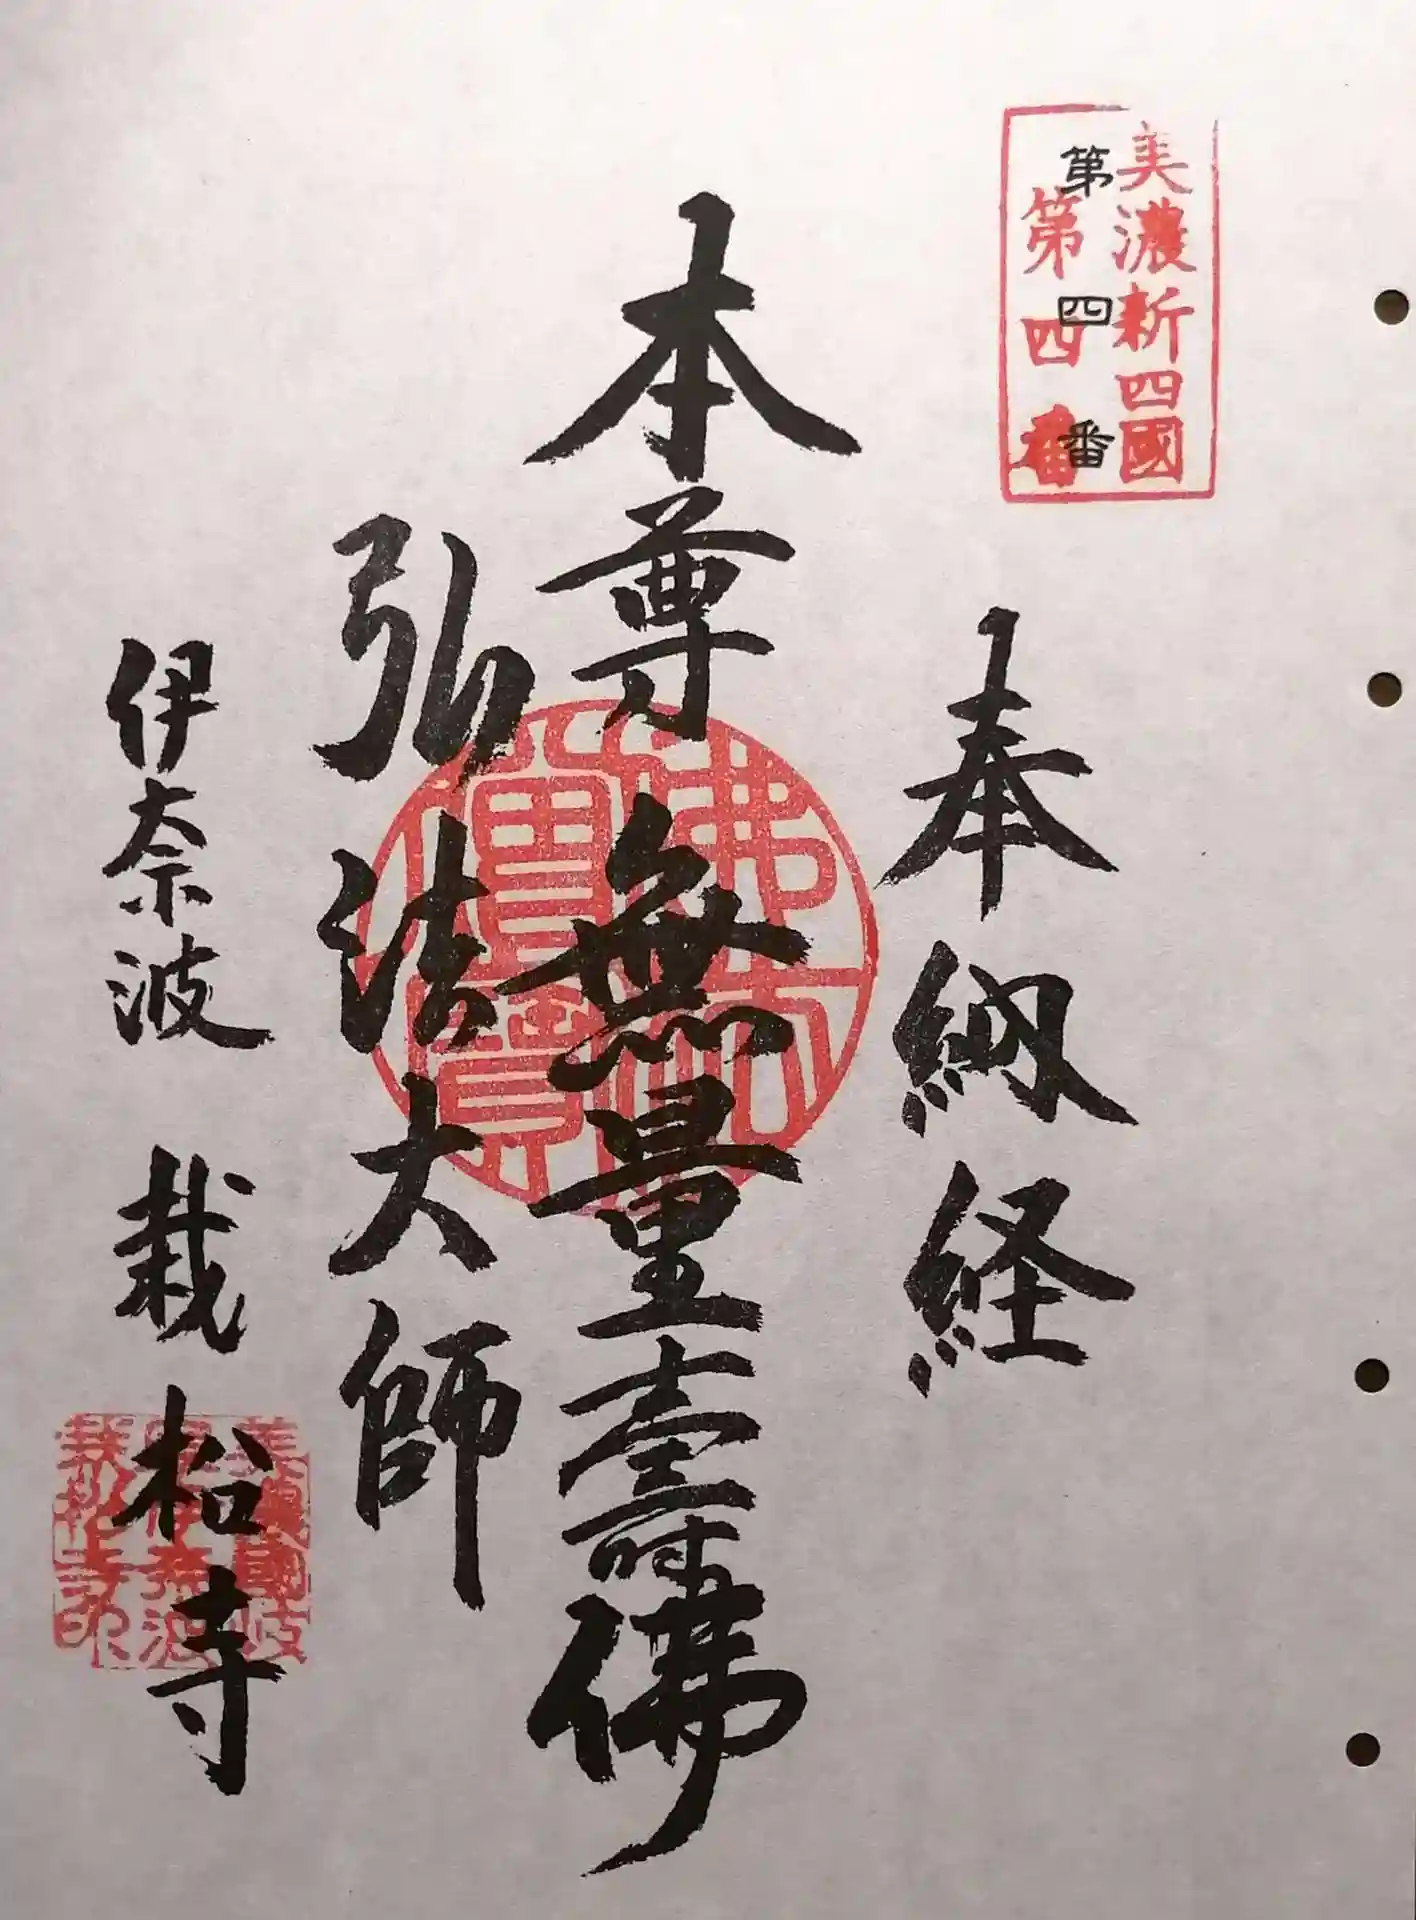 美濃新四國
第四番
第四番
奉納経
本尊無量壽佛
弘法大師
佛法僧寶
伊奈波 栽松寺
美濃國岐
阜伊奈波
栽松寺印